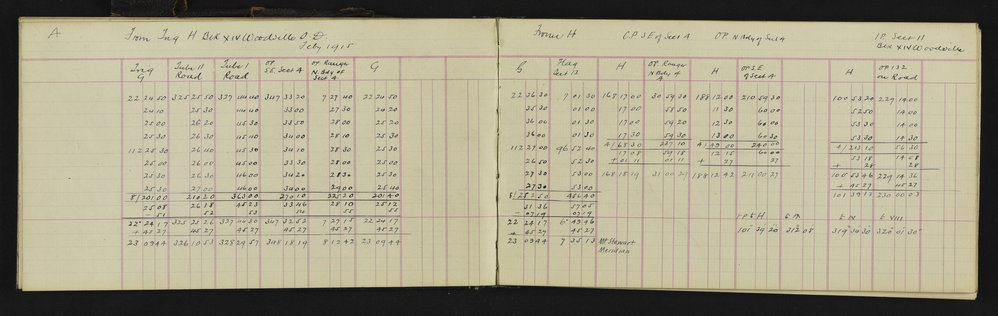 A
From Trig H Blk XIV Woodville S.D.
Feby 1915
Trig G | Tube 11 Road | Tube 1 Road | OP S.E. Sect A | OP Range N. Bdy of Sect A | G
22 24 50 | 325 25 50 | 327 44 40 | 347 33 20 | 7 27 40 | 22 24 50
24 10 | 25 30 | 44 40 | 33 00 | 27 30 | 24 20
25 00 | 26 20 | 45 30 | 33 50 | 28 00 | 25 20
25 30 | 26 30 | 45 40 | 34 00 | 28 10 | 25 30
112 25 30 | 26 40 | 45 30 | 34 10 | 28 30 | 25 30
25 00 | 26 00 | 45 00 | 33 30 | 28 00 | 25 00
25 30 | 26 30 | 46 00 | 34 20 | 28 30 | 25 30
25 30 | 27 00 | 46 00 | 34 00 | 29 00 | 25 40
8/201 00 | 210 20 | 363 00 | 270 10 | 225 20 | 201 40
25 08 | 26 18 | 45 23 | 33 46 | 28 10 | 25 12
- 51 | 52 | 53 | 54 | 55 | 55
22 24 17 | 325 25 26 | 327 44 30 | 347 32 52 | 7 27 15 | 22 24 17
+ 45 27 | 45 27 | 45 27 | 45 27 | 45 27 | 45 27
23 09 44 | 326 10 53 | 328 29 57 | 348 18 19 | 8 12 42 | 23 09 44
From H
C.P. S.E of Sect A
OP. N. Bdy of Sect A
I.P. Sect 11
Blk XIV Woodville
G | Flag Sect 12 | H | OP Range N Bdy of A | H | OP S.E of Sect A | H | OP 132 on Road
22 26 30 | 7 01 30 | 168 17 00 | 30 59 30 | 188 12 00 | 210 59 30 | 100 53 20 | 229 14 00
25 30 | 01 00 | 17 00 | 58 50 | 11 30 | 60 00 | 52 50 | 14 00
36 00 | 01 30 | 17 00 | 59 20 | 12 30 | 60 00 | 53 30 | 14 00
36 00 | 01 30 | 17 30 | 59 30 | 13 00 | 60 30 | 53 30 | 14 30
112 27 00 | 96 52 40 | 4/68 30 | 237 10 | 4/49 00 | 240 00 | 4/213 10 | 56 30
17 08 | 59 18 | 12 15 | 60 00 | 53 18 | 14 08
26 50 | 52 30 | + 01 11 | 01 11 | + 27 | 27 | + 28 | 28
27 30 | 53 00 | 168 18 19 | 31 00 29 | 188 12 42 | 211 00 27 | 100 53 46 | 229 14 36
27 30 | 53 00 | + 45 27 | 45 27
8/252 50 | 456 40 | 101 39 13 | 230 00 03
31 36 | 57 05
- 07 19 | 07 19
22 24 17 | 6 49 46
+ 45 27 | 45 27
23 09 44 | 7 35 13 | Mt Stewart
Meridian
101 29 20 | 312 08 | 319 30 30 | 320 01 30